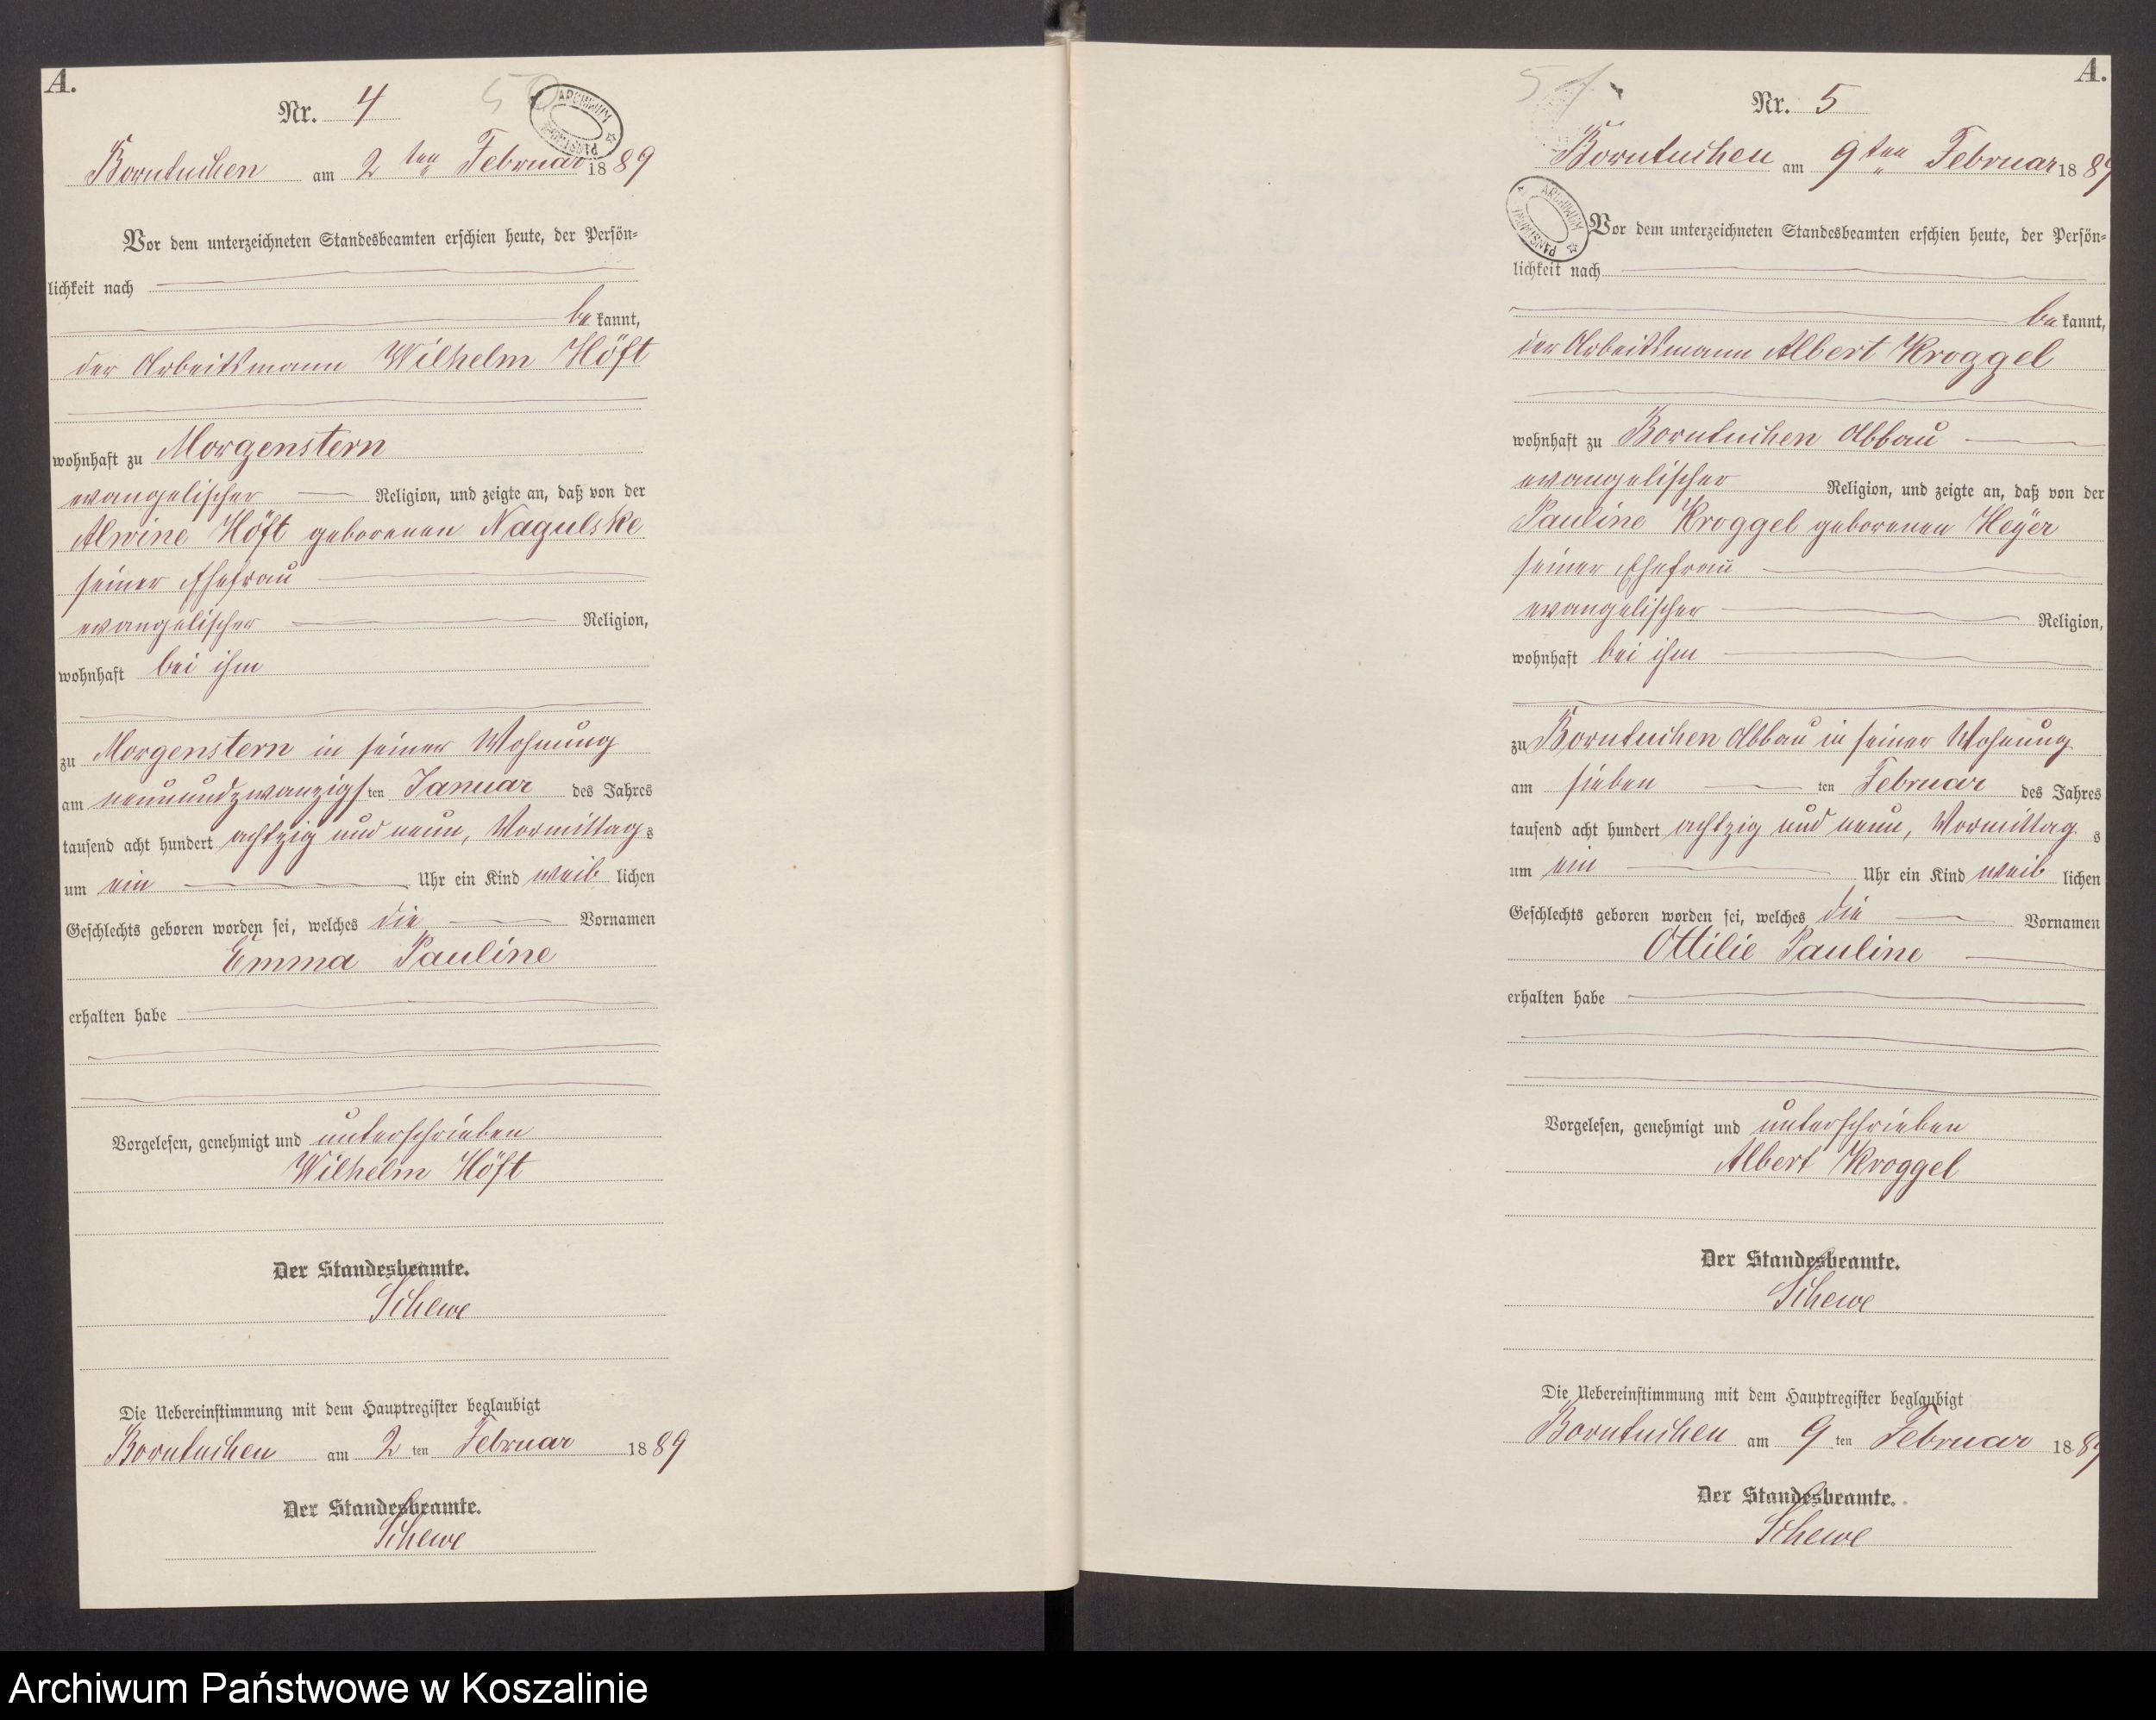 A.
Nr. 4
50
ARCHIWUM PAŃSTWOWE
Borntuchen am 2ten Februar 1889
Vor dem unterzeichneten Standesbeamten erschien heute, der Persön-
lichkeit nach
bekannt,
der Arbeitsmann Wilhelm Höft
wohnhaft zu Morgenstern
evangelischer Religion, und zeigte an, daß von der
Alwine Höft geborenen Nagulske
seiner Ehefrau
evangelischer Religion,
wohnhaft bei ihm
zu Morgenstern in seiner Wohnung
am neunundzwanzigsten Januar des Jahres
tausend acht hundert achtzig und neun, Vormittags
um ein Uhr ein Kind weiblichen
Geschlechts geboren worden sei, welches die Vornamen
Emma Pauline
erhalten habe
Vorgelesen, genehmigt und unterschrieben
Wilhelm Höft
Der Standesbeamte.
Schewe
Die Uebereinstimmung mit dem Hauptregister beglaubigt
Borntuchen am 2ten Februar 1889
Der Standesbeamte.
Schewe
A.
51
Nr. 5
Borntuchen am 9ten Februar 1889
ARCHIWUM PAŃSTWOWE
Vor dem unterzeichneten Standesbeamten erschien heute, der Persön-
lichkeit nach
bekannt,
der Arbeitsmann Albert Kroggel
wohnhaft zu Borntuchen Abbau
evangelischer Religion, und zeigte an, daß von der
Pauline Kroggel geborenen Heyer
seiner Ehefrau
evangelischer Religion,
wohnhaft bei ihm
zu Borntuchen Abbau in seiner Wohnung
am siebenten Februar des Jahres
tausend acht hundert achtzig und neun, Vormittags
um ein Uhr ein Kind weiblichen
Geschlechts geboren worden sei, welches die Vornamen
Ottilie Pauline
erhalten habe
Vorgelesen, genehmigt und unterschrieben
Albert Kroggel
Der Standesbeamte.
Schewe
Die Uebereinstimmung mit dem Hauptregister beglaubigt
Borntuchen am 9ten Februar 1889
Der Standesbeamte.
Schewe
Archiwum Państwowe w Koszalinie